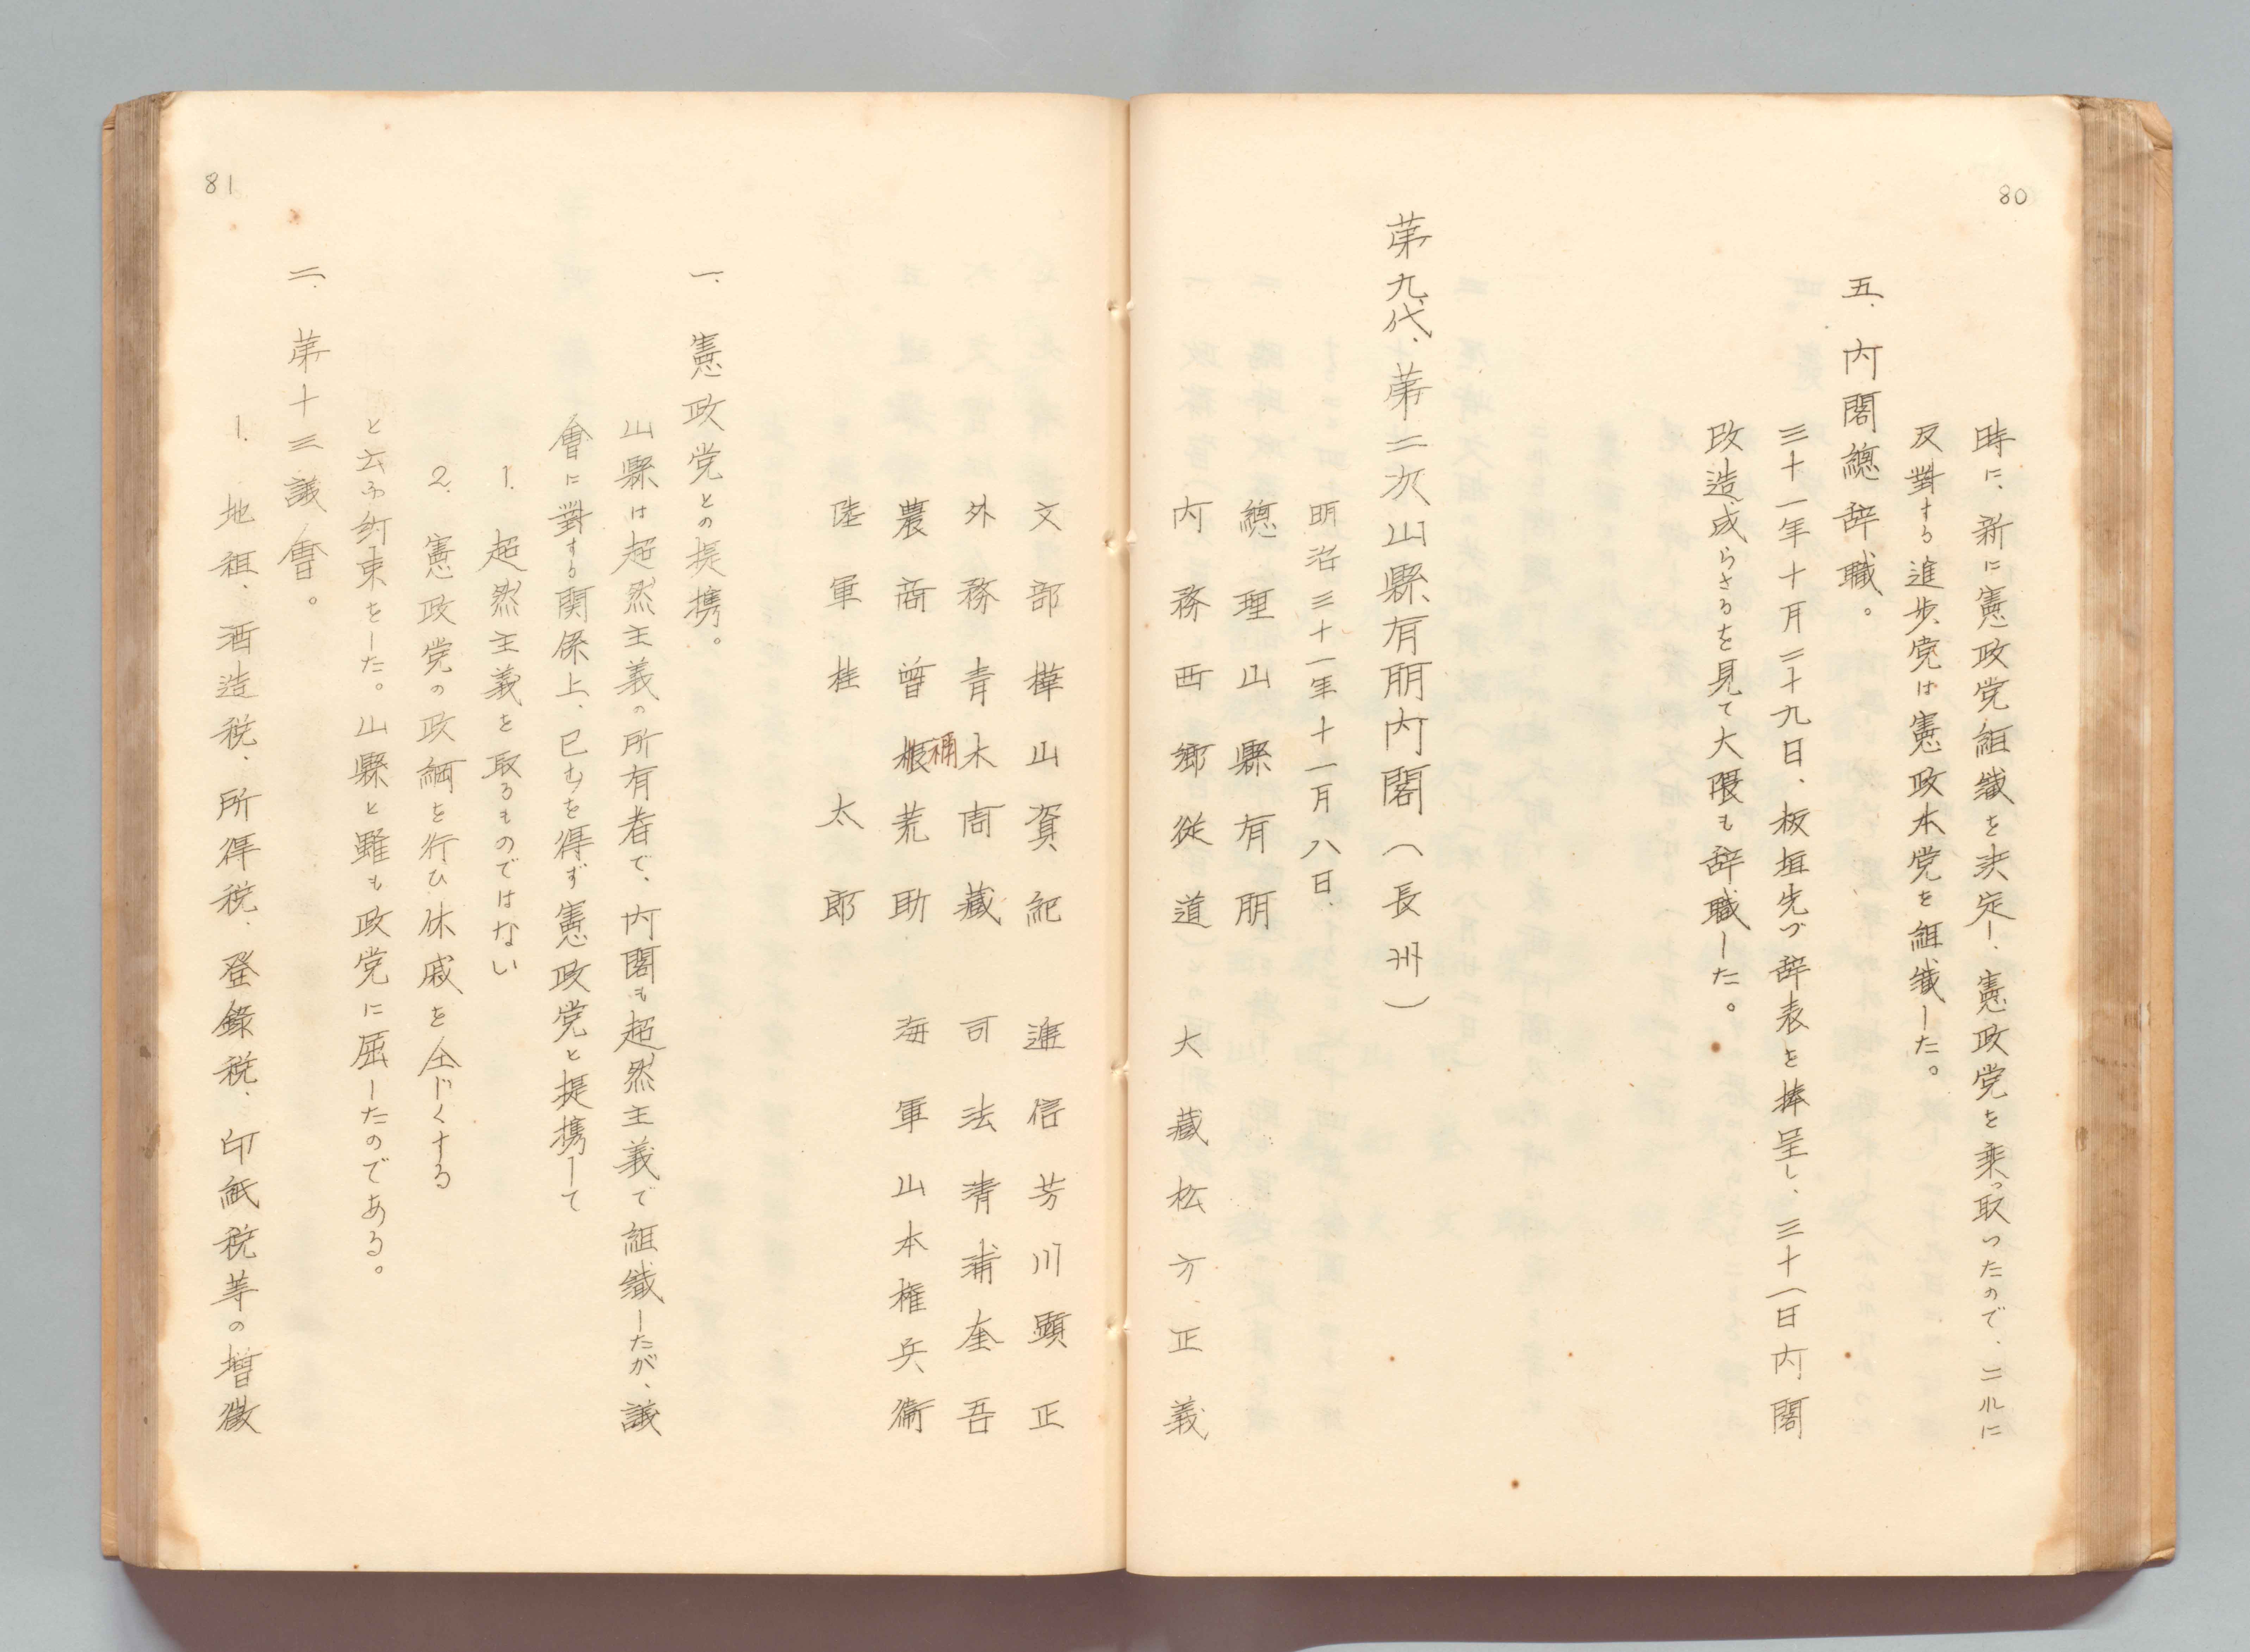 80
時に、新に憲政党組織を決定し、憲政党を乗っ取ったので、コレに
反對する進歩党は憲政本党を組織した。
五、内閣總辞職。
三十一年十月二十九日、板垣先づ辞表を捧呈し、三十一日内閣
改造成らさるを見て大隈も辞職した。
第九代、第二次山縣有朋内閣（長州）
明治三十一年十一月八日、
總理 山縣有朋
内務 西郷従道 大藏 松方正義
文部 樺山資紀 逓信 芳川顕正
外務 青木周藏 司法 清浦奎吾
農商 曽根荒助 海軍 山本権兵衛
禰
陸軍 桂太郎
一、憲政党との提携。
山縣は超然主義の所有者で、内閣も超然主義で組織したが、議
會に對する関係上、已むを得ず憲政党と提携して
1. 超然主義を取るものではない
2. 憲政党の政綱を行ひ休戚を仝じくする
と云ふ約束をした。山縣と雖も政党に屈したのである。
二、第十三議會。
1. 地租、酒造税、所得税、登録税、印紙税等の増徴
81